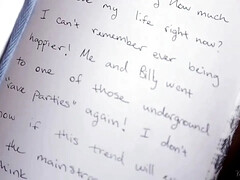 my life right now?
I can't remember ever being
happier! Me and Billy went
to one of those underground
"rave parties" again! I don't
now if this trend will
the mainstr
think